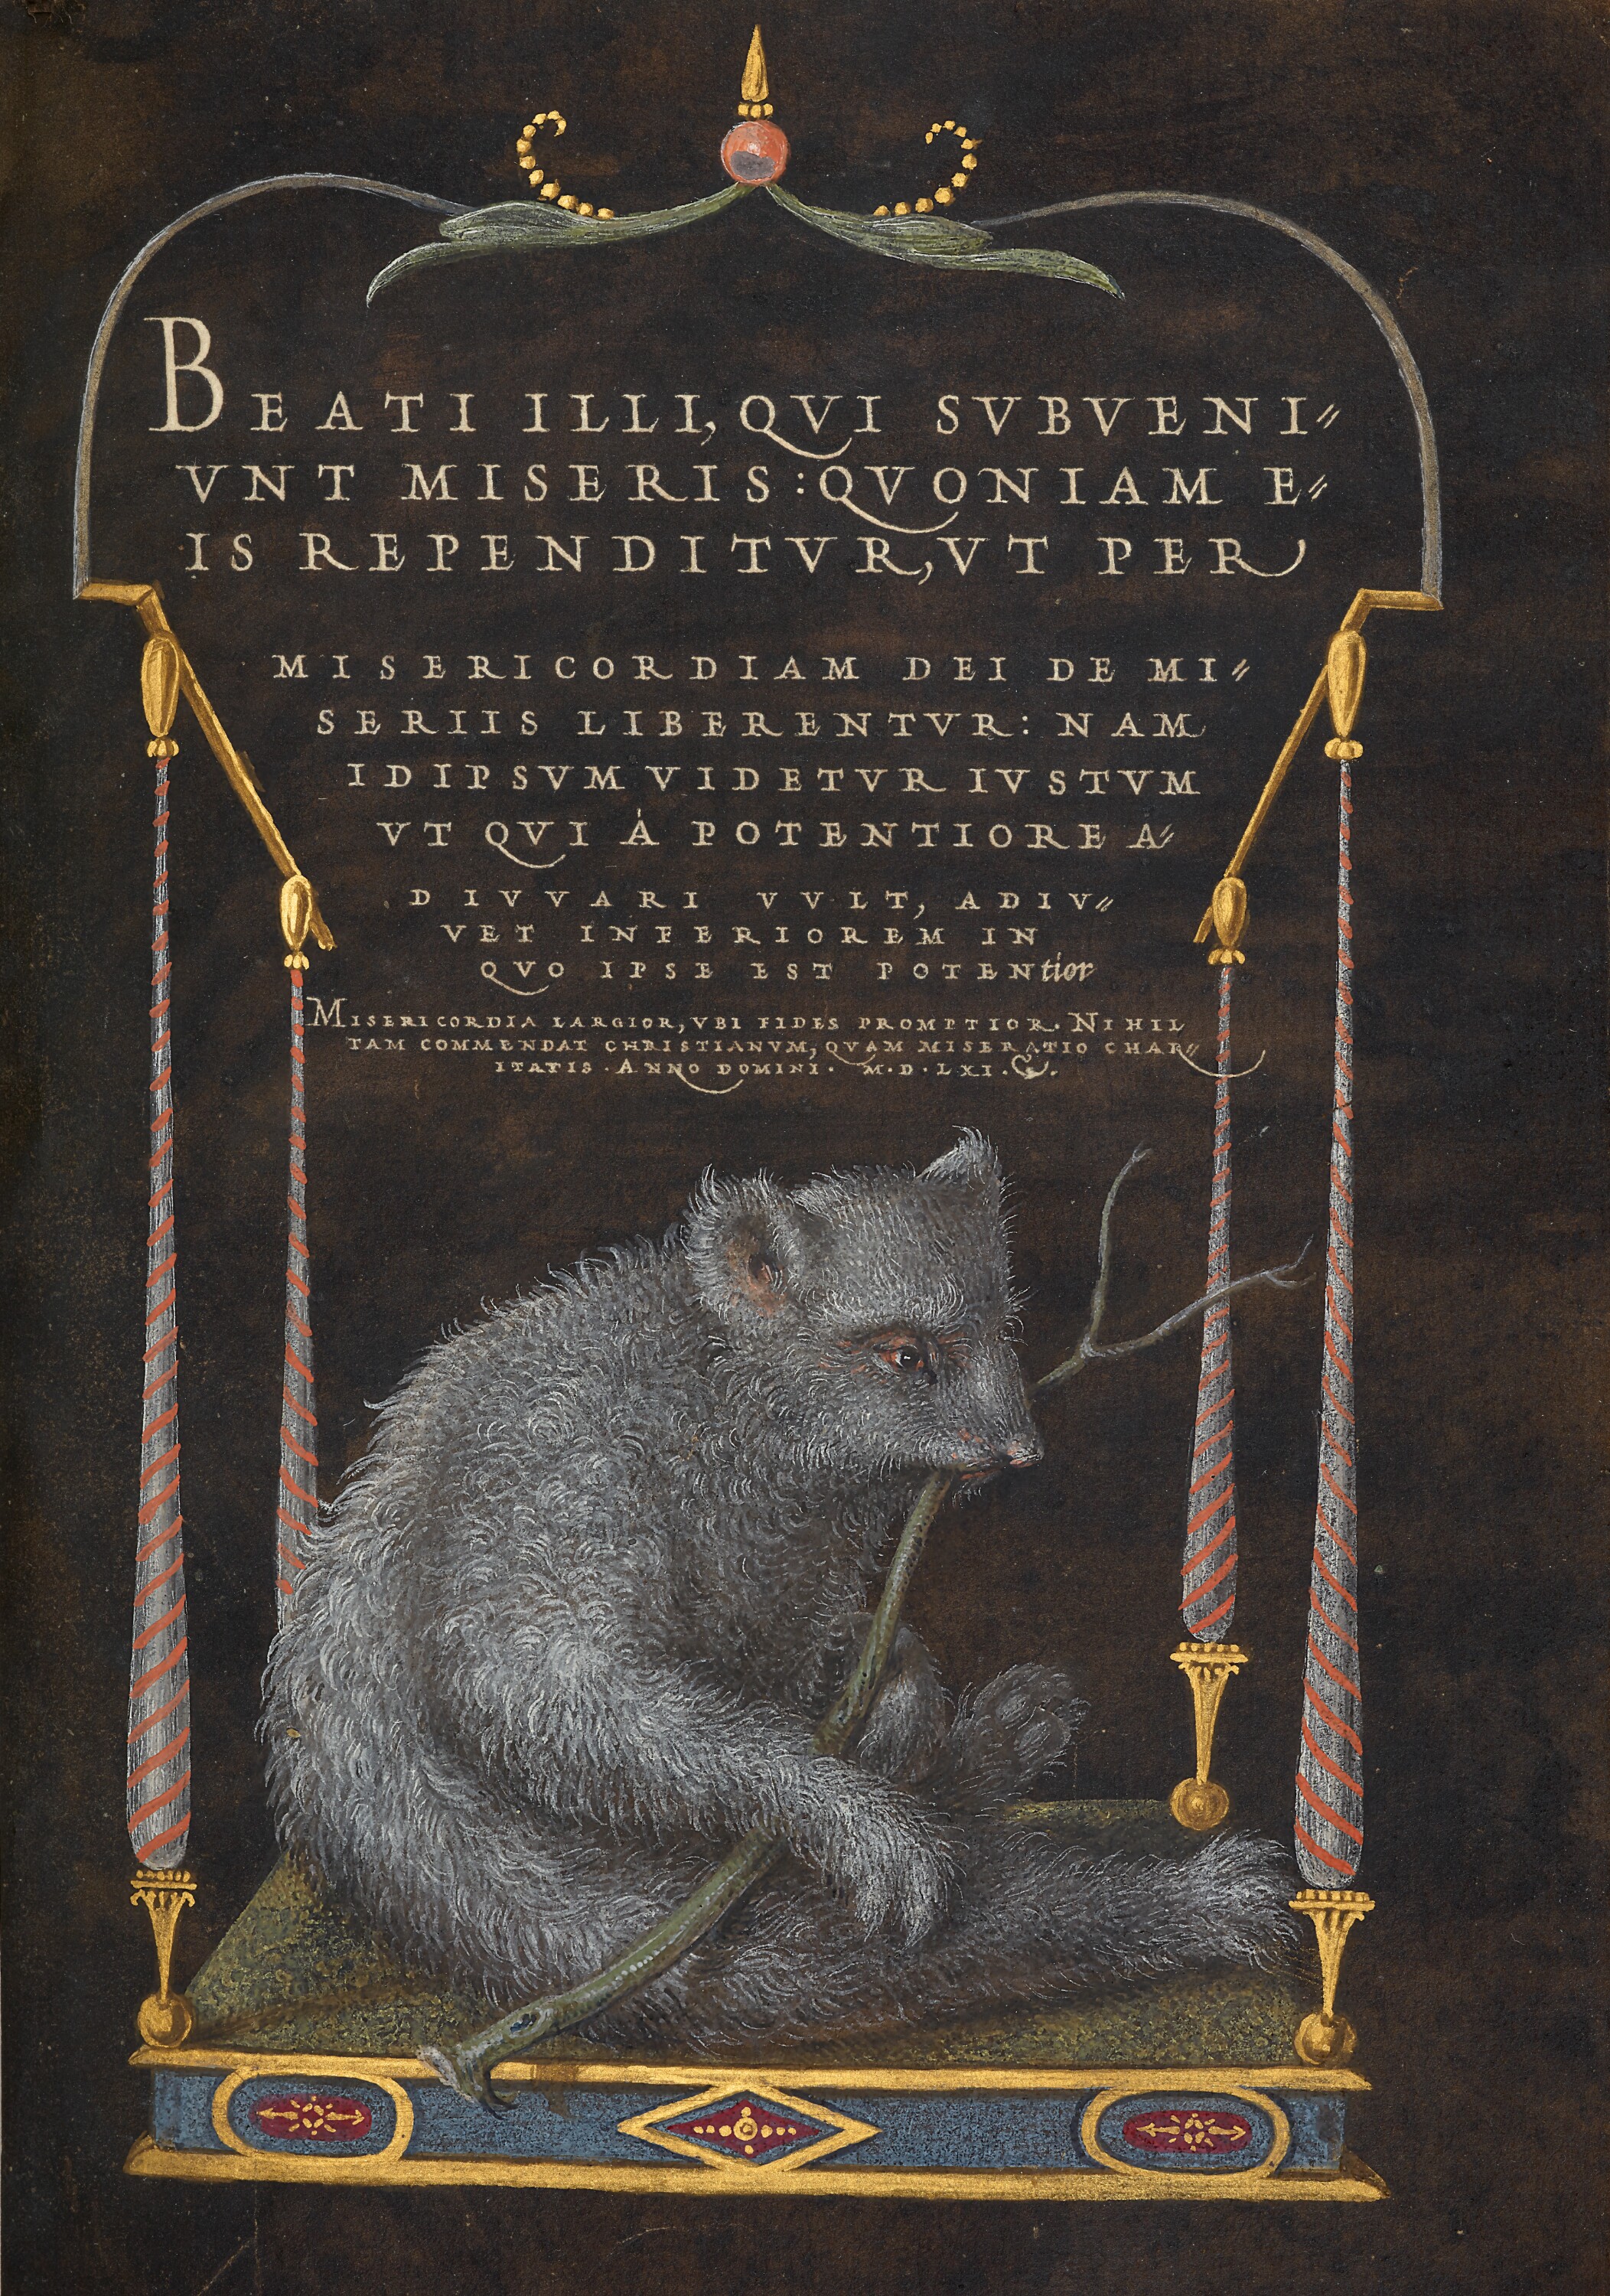 BEATI ILLI, QVI SVBVENI〃
VNT MISERIS: QVONIAM E〃
IS REPENDITVR, VT PER
MISERICORDIAM DEI DE MI〃
SERIIS LIBERENTVR: NAM
ID IPSVM VIDETVR IVSTVM
VT QVI Á POTENTIORE A〃
DIVVARI VVLT, ADIV〃
VET INFERIOREM IN
QVO IPSE EST POTENtior
MISERICORDIA LARGIOR, VBI FIDES PROMPTIOR. NIHIL
TAM COMMENDAT CHRISTIANVM, QVAM MISERATIO CHAR〃
ITATIS. ANNO DOMINI. M.D.LXI.